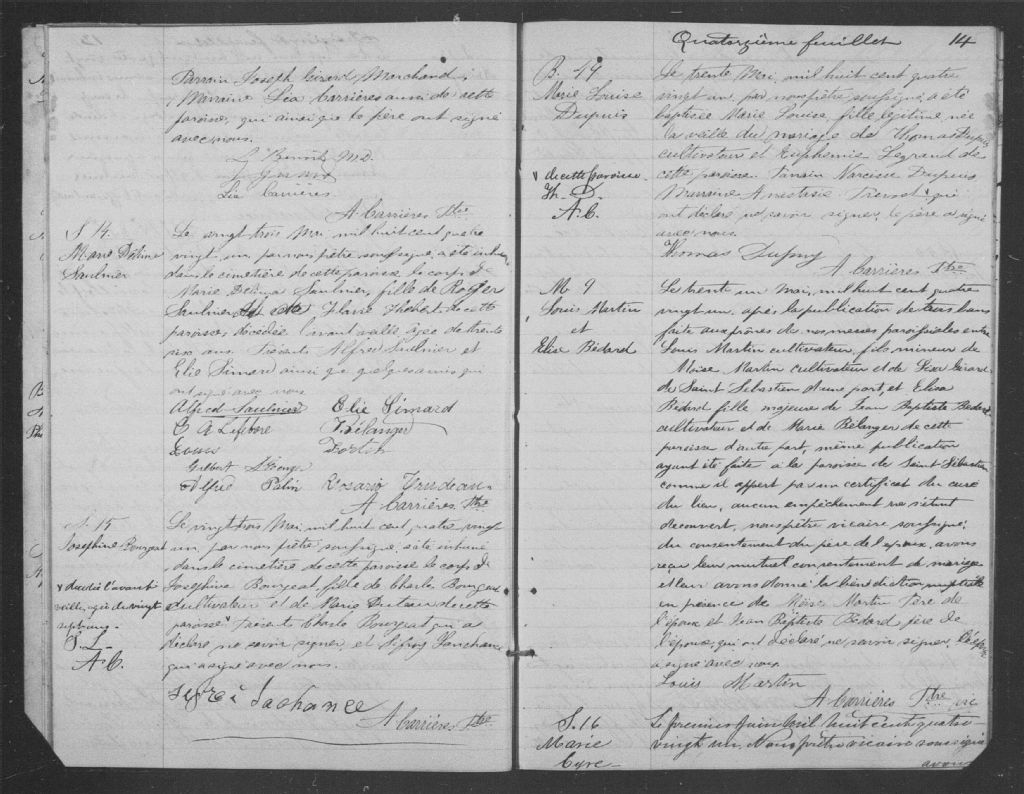 Parrain Joseph Girard Marchand,
Marraine Léa Carrières aussi de cette
paroisse, qui ainsi que le père ont signé
avec nous.
L. J. Benoit M.D.
Léa Carrières
A. Carrières Ptre
S. 14.
Marie Délima
Saulnier
Le vingt trois Mai mil huit cent quatre
vingt un, par nous prêtre soussigné, a été inhumé
dans le cimetière de cette paroisse le corps de
Marie Délima Saulnier, fille de Roger
Saulnier et de Flavie Hébert de cette
paroisse, décédée l'avant veille agée de trente
six ans. Présents Alfred Saulnier et
Elie Simard ainsi que quelques amis qui
ont signé avec nous
Alfred Saulnier Elie Simard
G A Lefebvre Bélanger
Louis Fortin
Gilbert
Alfred Patin Rosario Trudeau
A Carrières Ptre
S. 15
Josephine Bourgeat
Le vingt trois Mai, mil huit cent, quatre vingt
un, par nous prêtre soussigné, a été inhumé
dans le cimetière de cette paroisse le corps de
Josephine Bourgeat fille de Charles Bourgeat
cultivateur et de Marie de cette
paroisse Présents Charles Bourgeat qui a
déclaré ne savoir signer, et Lachance
qui a signé avec nous.
l'avant
veille, agée de vingt
sept ans.
S. L.
A. C.
Lachance
A Carrières Ptre
Quatorzième feuillet 14
B. 49
Marie Louise
Dupuis
Le trente Mai, mil huit cent quatre
vingt un par nous prêtre soussigné, a été
baptisée Marie Louise, fille légitime née
la veille du mariage de Thomas Dupuis
cultivateur et Euphémie Legrand de
cette paroisse. Parrain Narcisse Dupuis
Marraine Anastasie qui
ont déclaré ne savoir signer, le père a signé
avec nous.
de cette paroisse.
Th. D.
A. C.
Thomas Dupuy
A Carrières Ptre
M 9
Louis Martin
et
Elise Bédard
Le trent un Mai, mil huit cent quatre
vingt un, après la publication de trois bans
faite aux prônes de nos messes paroissiales entre
Louis Martin cultivateur, fils mineur de
Moise Martin cultivateur et de Girard
de Saint Sébastien d'une part, et Elisa
Bedard fille majeure de Jean Baptiste Bedard
cultivateur et de Marie Bélanger de cette
paroisse d'autre part, même publication
ayant été faite à la paroisse de Saint Sébastien
comme il appert par un certificat du curé
du lieu, aucun empêchement ne s'étant
découvert, nous prêtre vicaire soussigné,
du consentement du père de l'époux, avons
reçu leur mutuel consentement de mariage
et leur avons donné la bénédiction nuptiale
en présence de Moïse Martin Père de
l'époux et Jean Baptiste Bédard père de
l'épouse, qui ont déclaré ne savoir signer, l'époux
a signé avec nous.
Louis Martin
A Carrières Ptre vic
S. 16
Marie
Cyre
Le premier Juin Mil huit cent quatre
vingt un, Nous prêtre vicaire soussigné
avons